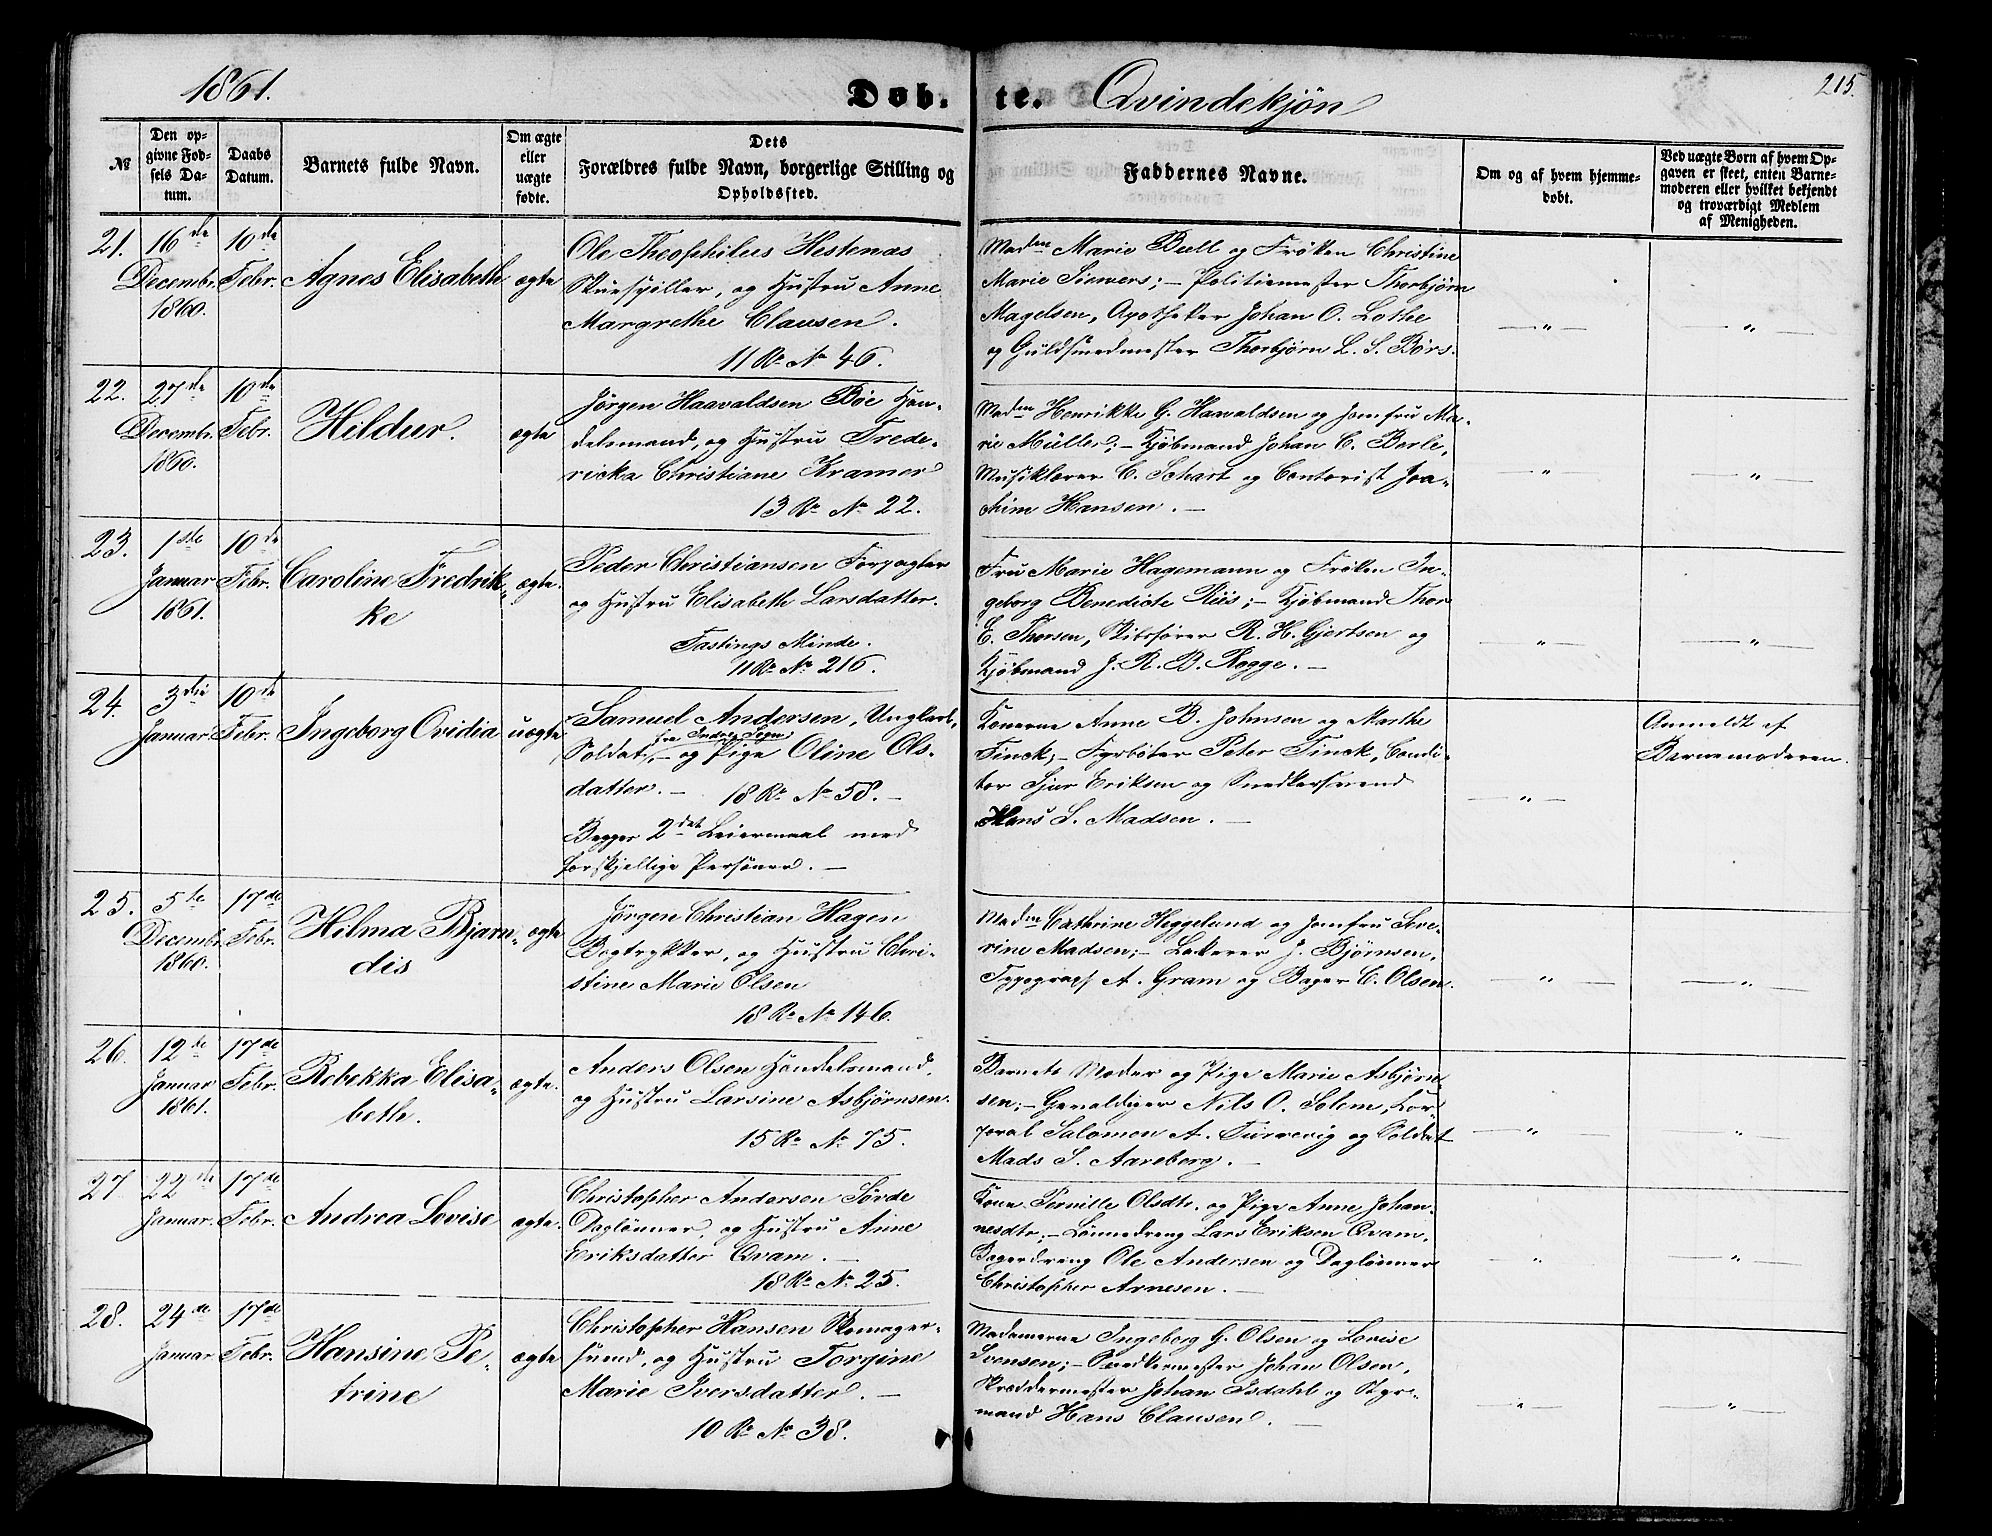 1861.
Døb. te. Qvindekjön
215.
№
Den op-
givne Fød-
sels Da-
tum.
Daabs
Datum.
Barnets fulde Navn.
Om ægte
eller
uægte
fødte.
Dets
Forældres fulde Navn, borgerlige Stilling og
Opholdssted.
Faddernes Navne.
Om og af hvem hjemme-
døbt.
Ved uægte Børn af hvem Op-
gaven er skeet, enten Barne-
moderen eller hvilket bekjendt
og troværdigt Medlem
af Menigheden.
21. 16de
Decembr.
1860.
10de
Febr.
Agnes Elisabeth
ægte
Ole Theophilus Hestenæs
Skuespiller, og Hustru Anne
Margrethe Clausen.
11 Rd. № 46.
Madm Marie Bull og Frøken Christine
Marie Siewers; – Politiemester Thorbjørn
Magelsen, Apotheker Johan O. Lothe
og Guldsmedmester Thorbjørn L. S. Børs.
— " —
— " —
22. 27de
Decembr.
1860.
10de
Febr.
Hildur.
ægte
Jörgen Haavaldsen Bøe Han-
delsmand, og Hustru Frede-
ricka Christiane Kramer
13 Rd. № 22.
Madm Henrikke G. Haavaldsen og Jomfru Ma-
rie Müller; – Kjöbmand Johan C. Berle,
Musiklærer C. Schart og Contorist Joa-
chim Hansen. –
"
"
23. 1ste
Januar
1861.
10de
Febr.
Caroline Fredrik-
ke
ægte.
Peder Christiansen Forpagter
og Hustru Elisabeth Larsdatter.
Fastings Minde.
11 Rd. № 216.
Fru Marie Hagemann og Frøken In-
geborg Benedicte Riis; – Kjöbmand Thor
E. Thorsen, Skibsfører R. H. Gjertsen og
Kjöbmand J. R. B. Rogge. –
"
"
24. 3die
Januar
10de
Febr.
Ingeborg Ovidia
uægte
Samuel Andersen, Ungkarl,
fra Indre Sogn
Soldat, – og Pige Oline Ols-
datter. – 18 Rd. № 58. –
Begges 2det Leiermaal med
forskjellige Personer. –
Konerne Anne B. Johnsen og Marthe
Finck; – Fyrbøter Peter Finck, Condi-
tor Sjur Eriksen og Snedkersvend
Hans S. Madsen. –
— " —
Anmeldt af
Barnemoderen.
25. 5te
Decembr.
1860.
17de
Febr.
Hilma Bjarn-
dis
ægte
Jörgen Christian Hagen
Bogtrykker, og Hustru Chri-
stine Marie Olsen
18 Rd. № 146.
Madm Cathrine Heggelund og Jomfru Seve-
rine Madsen; – Lakerer J. Bjørnsen,
Typograph A. Gram og Bager C. Olsen.
"
— " —
26. 12te
Januar
1861.
17de
Febr.
Rebekka Elisa-
beth.
ægte.
Anders Olsen Handelsmand,
og Hustru Larsine Asbjørnsen.
15 Rd. № 75.
Barnets Moder og Pige Marie Asbjørn-
sen; – Gevaldiger Nils O. Solem, Cor-
poral Salomon A. Turvevig og Soldat
Mads S. Aareberg. –
— " —
"
27 22de
Januar.
17de
Febr.
Andrea Lovise
ægte.
Christopher Andersen Sörde
Daglönner, og Hustru Anne
Eriksdatter Qvam. –
18 Rd. № 25.
Kone Pernille Olsdtr. og Pige Anne Johan-
nesdtr; – Lönnedreng Lars Eriksen Qvam,
Bagerdreng Ole Andersen og Daglönner
Christopher Arnesen. –
"
— " —
28. 24de
Januar
17de
Febr.
Hansine Pe-
trine
ægte
Christopher Hansen Skomager-
svend, og Hustru Torgine
Marie Iversdatter. –
10 Rd. № 38.
Madamerne Ingeborg G. Olsen og Lovise
Svensen; – Snedkermester Johan Olsen,
Skræddermester Johan Isdahl og Styr-
mand Hans Clausen. –
— " —
— " —